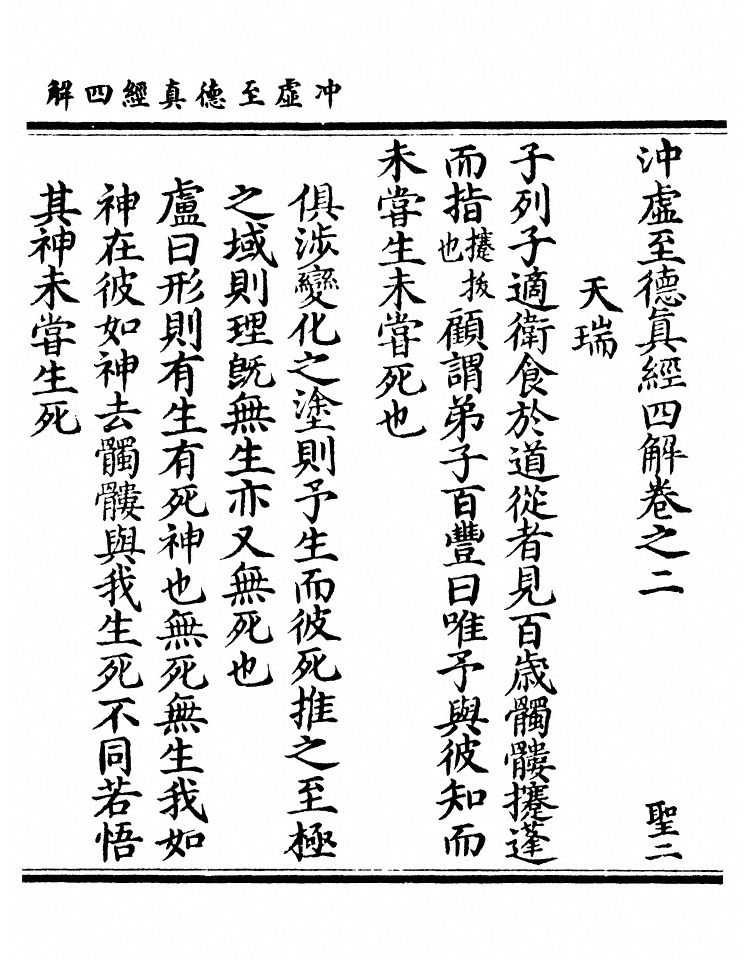 冲虛至德真經四解
沖虛至德眞經四解卷之二　聖二
天瑞
子列子適衛食於道從者見百歲髑髏攓蓬
而指攓拔也顧謂弟子百豐曰唯予與彼知而
未嘗生未嘗死也
俱涉變化之塗則予生而彼死推之至極
之域則理旣無生亦又無死也
盧曰形則有生有死神也無死無生我如
神在彼如神去髑髏與我生死不同若悟
其神未嘗生死